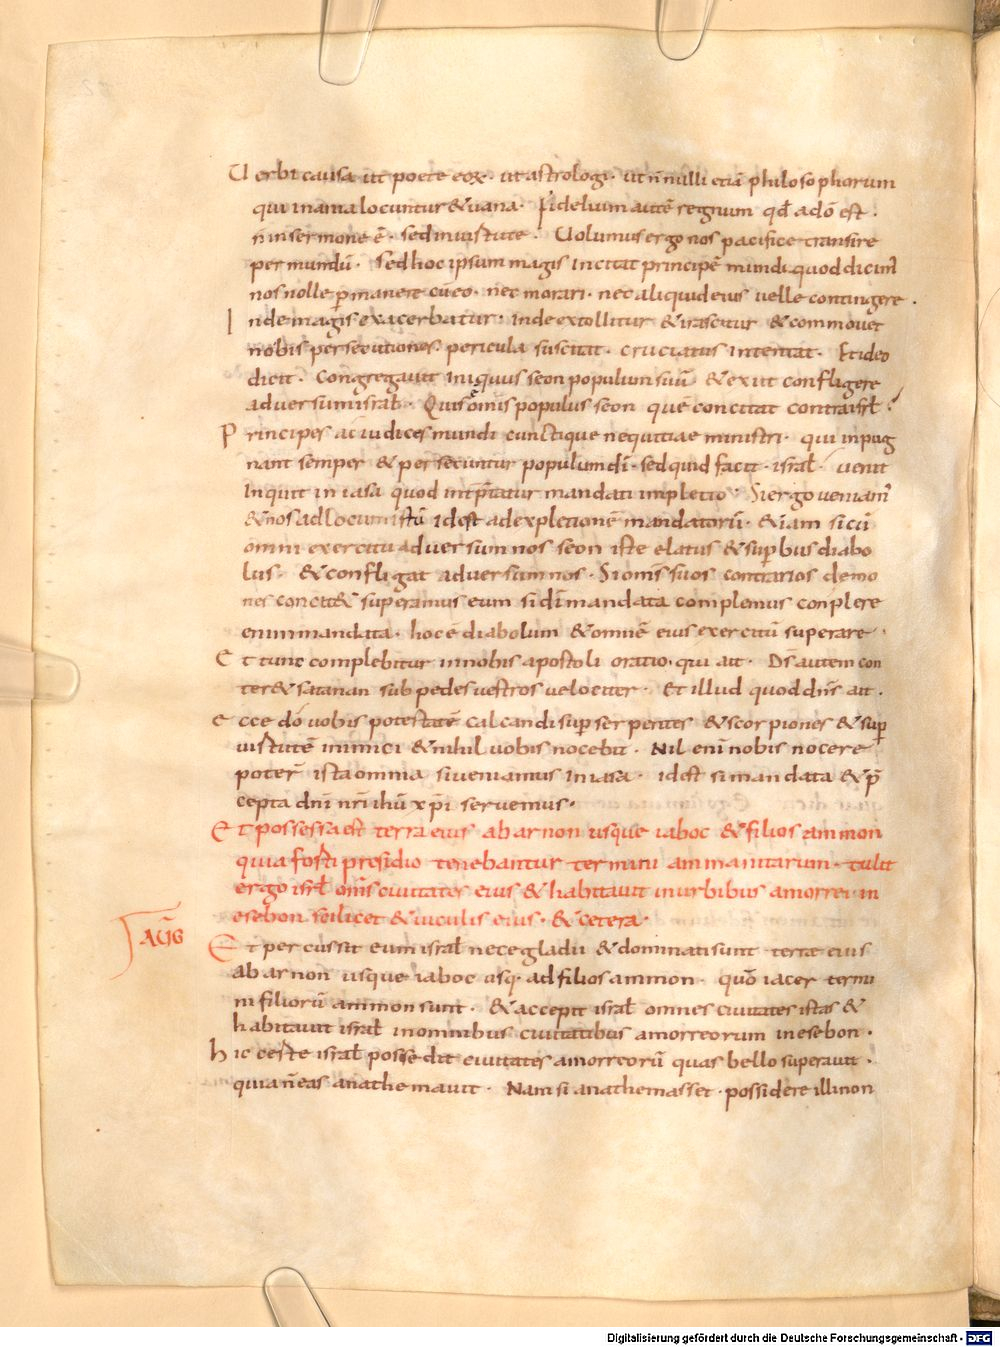 Uerbi causa ut poete eoꝝ · ut astrologi · ut n̄nulli etiā philosophorum
qui inania locuntur & uana · Fidelium autē regnum qd̄ ad dō est ·
n̄ in sermone ē · sed in uirtute · Uolumus ergo nos pacifice transire
per mundū · Sed hoc ipsum magis incitat principē mundi quod dicim̄
nos nolle p̄manere cū eo · nec morari · nec aliquid eius uelle contingere ·
Inde magis exacerbatur · Inde extollitur & irascitur & commouet
nobis persecutiones · pericula suscitat · cruciatus intentat · Et ideo
dicit · Congregauit iniquus seon populum suū & exiit confligere
aduersum israł · Quis ē omis populus seon quē concitat contra isrł ·
Principes ac iudices mundi cunctique nequitiae ministri · qui inpug
nant semper & persecuntur populum dī · sed quid facit · israł · uenit
inquit in iasa quod int̄p̄tatur mandati impletio · Si ergo ueniam̄
& nos ad locum istū id est ad expletionē mandatorū · & iam si cū
omni exercitu aduersum nos seon iste elatus & sup̄bus diabo
lus · & confligat aduersum nos · Si om̄s suos contrarios demo
nes concit& superamus eum si dī mandata complemus conplere
enim mandata · hoc ē diabolum & omnē eius exercitū superare ·
Et tunc complebitur in nobis apostoli oratio · qui ait · Ds̄ autem con
ter& satanan sub pedes uestros uelociter · Et illud quod dn̄s ait ·
ecce dō uobis potestatē calcandi sup̄ serpentes & scorpiones & sup̄
uirtutē inimici & nihil uobis nocebit · Nil enī nobis nocere
poter̄ ista omnia si ueniamus in iasa · id est si mandata & p̄
cepta dn̄i nr̄i ihū xp̄i seruemus ·
Et possessa est terra eius ab arnon usque iaboc & filios ammon
quia forti presidio tenebantur termini ammanitarum · tulit
ergo isrł om̄s ciuitates eius & habitauit in urbibus amorrei · in
esebon scilicet & uiculis eius · & cetera ·
AŪG
Et percussit eum israł nece gladii & dominati sunt terrae eius
ab arnon usque iaboc usq· ad filios ammon · quō iacer termi
ni filiorū ammon sunt · & accepit israł omnes ciuitates istas &
habitauit israł in omnibus ciuitatibus amorreorum in esebon ·
hic certe israł possedit ciuitates amorreorū quas bello superauit ·
quia n̄ eas anathemauit · Nam si anathemasset · possidere illi non
Digitalisierung gefördert durch die Deutsche Forschungsgemeinschaft - DFG